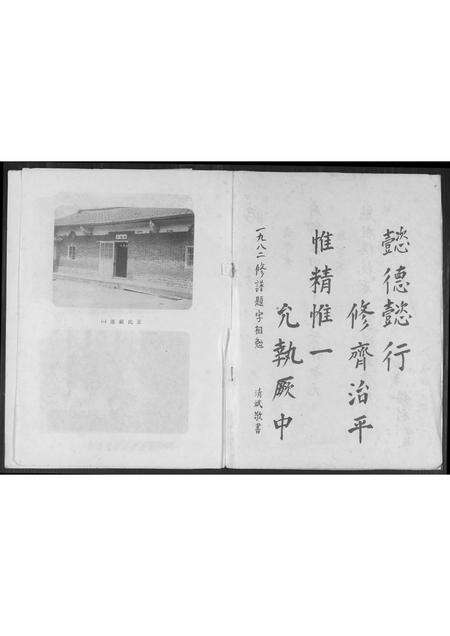 懿德懿行
修齊治平
惟精惟一
允執厥中
一九八二修譜題字勉
清斌敬書